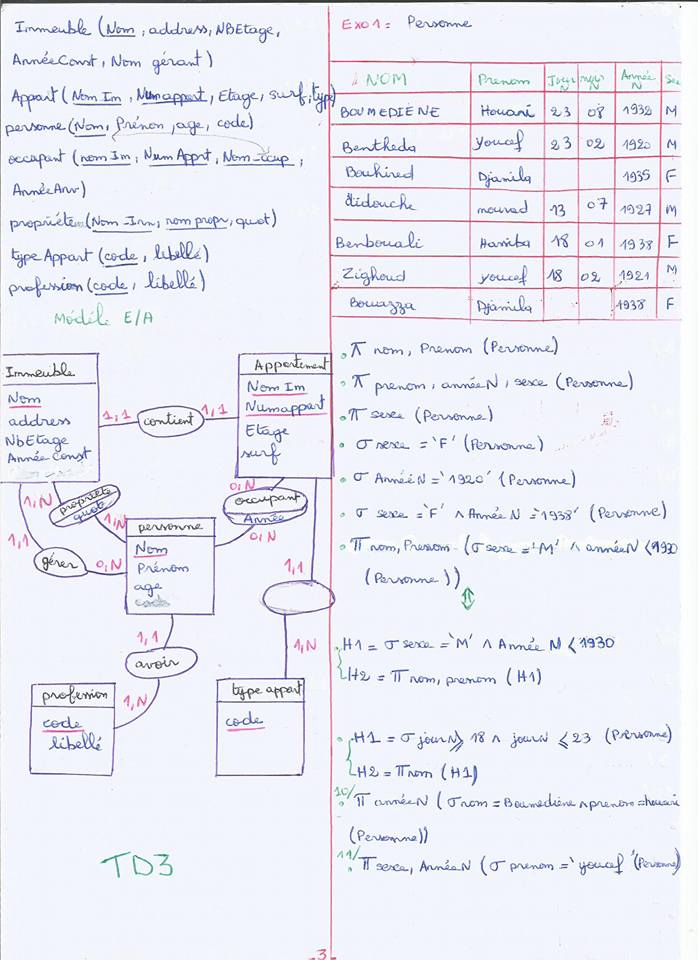 Immeuble (Nom, address, NBEtage,
AnnéeConst, Nom gérant)
Appart (Nom Im, Numappart, Etage, surf, type)
personne (Nom, Prénon, age, code)
occupant (nom Im, Num Apprt, Nom-ccup,
AnnéeArr)
propriéte (Nom-Im, nom propr, quot)
type Appart (code, libellé)
profession (code, libellé)
Modéle E/A
Immeuble
Nom
address
NbEtage
Année Const
1,1
contient
1,1
Appartement
Nom Im
Numappart
Etage
surf
1,N
propriéte
quot
1,N
0,N
occupant
Année
0,N
1,1
gérer
0,N
personne
Nom
Prénom
age
1,1
1,N
1,1
avoir
1,N
profession
code
libellé
type appart
code
TD3
Exo1: Personne
NOM Prenom Jour N mois N Année N Sex
BOUMEDIENE Houari 23 08 1932 M
Bentheda youcef 23 02 1920 M
Bouhired Djamila 1935 F
didouche mourad 13 07 1927 M
Benbouali Hassiba 18 01 1938 F
Zighoud youcef 18 02 1921 M
Bouazza Djamila 1938 F
. π nom, Prenom (Personne)
. π prenom, annéeN, sexe (Personne)
. π sexe (Personne)
. σ sexe = 'F' (Personne)
. σ AnnéeN = '1920' (Personne)
. σ sexe = 'F' ∧ Année N = '1938' (Personne)
. π nom, Prenom (σ sexe = 'M' ∧ annéeN < 1930
(Personne))
⇕
H1 = σ sexe = 'M' ∧ Année N < 1930
H2 = π nom, prenom (H1)
. H1 = σ jourN ⩾ 18 ∧ jourN ⩽ 23 (Personne)
H2 = π nom (H1)
10/ π annéeN (σ nom = Boumediène ∧ prenom = houari
(Personne))
11/ π sexe, AnnéeN (σ prenom = 'youcef' (Personne)
-3-